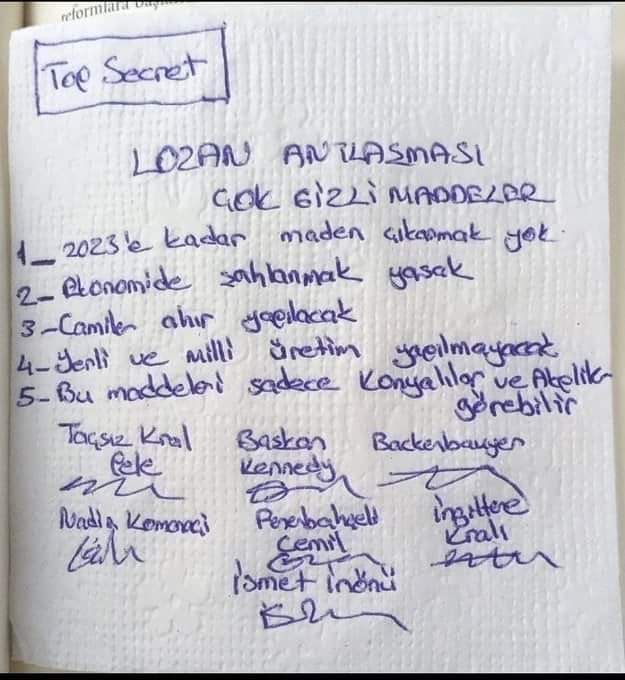 reformlara başla
Top Secret
LOZAN ANTLAŞMASI
ÇOK GİZLİ MADDELER
1_ 2023'e kadar maden çıkarmak yok.
2- Ekonomide şahlanmak yasak
3-Camiler ahır yapılacak
4-Yerli ve milli üretim yapılmayacak
5-Bu maddeleri sadece Konyalılar ve Akpliler
görebilir
Taçsız Kral Başkan Backenbauyer
Pele Kennedy
Nadia Komonaçi Fenerbahçeli İngiltere
Cemil Kralı
İsmet İnönü